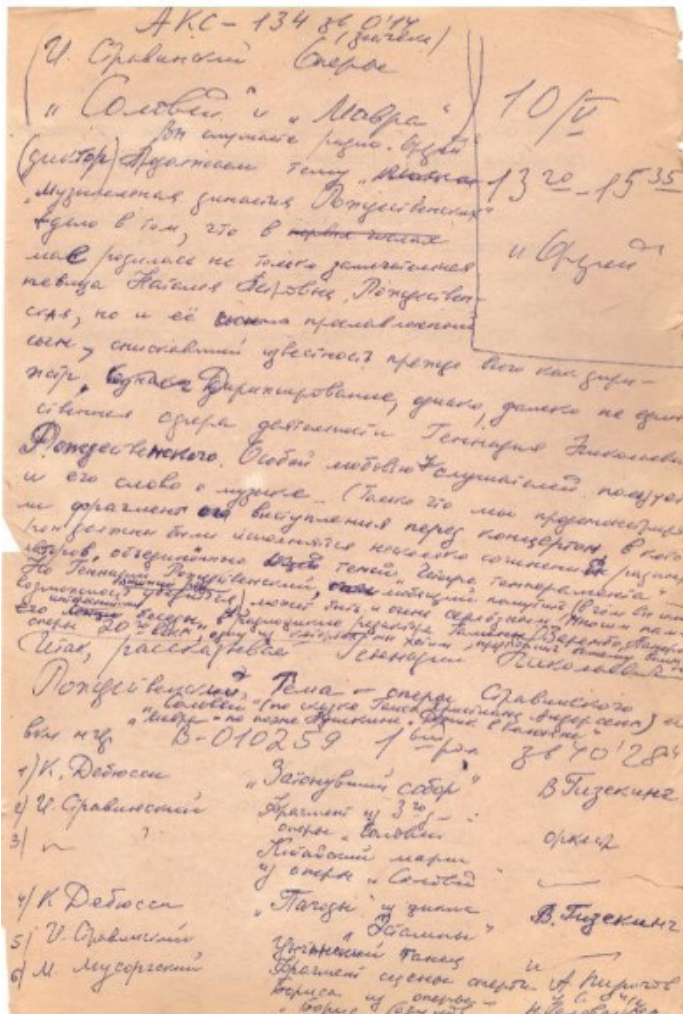 АКС-134 зв 0'14
(значела)
И. Стравинский Оперы
"Соловей" и "Мавра"
10/V
13 20 - 15 35
"Орфей"
Вы слушаете радио "Орфей"
(диктор) Продолжаем тему
"Музыкальная династия Рождественских"
дело в том, что в первых числах
мая родилась не только замечательная
певица Наталия Петровна Рождествен-
ская, но и её прославленный
сын, снискавший известность прежде всего как дири-
жёр. Дирижирование, однако, далеко не един
ственная сфера деятельности Геннадия Николаевича
Рождественского. Особой любовью у слушателей пользует
и его слово о музыке. (Только что мы продемонстриро
ли фрагмент его выступления перед концертом, в кото
ром должны были исполняться несколько сочинений разных
авторов, объединённые темой "Четыре темперамента"
Но Геннадий Рождественский, любящий пошутить (в чём вы имели
возможность убедиться) может быть и очень серьёзным.
его беседы
оперы 20го века
Итак, рассказывает Геннадий Николаевич
Рождественский. Тема - оперы Стравинского
"Соловей" (по сказке Ганса Христиана Андерсена) и
"Мавра" - по поэме Пушкина "Домик в Коломне"
В-010259 зв 40'28"
1) К. Дебюсси "Затонувший собор" В. Гизекинг
2) И. Стравинский Фрагмент из 3го
оперы "Соловей" оркестр
3) Китайский марш
из оперы "Соловей"
4) К. Дебюсси "Пагоды" из цикла В. Гизекинг
"Эстампы"
5) И. Стравинский танец
6) М. Мусоргский Фрагмент сцены смерти А. Пирогов
Бориса из оперы
"Борис Годунов"